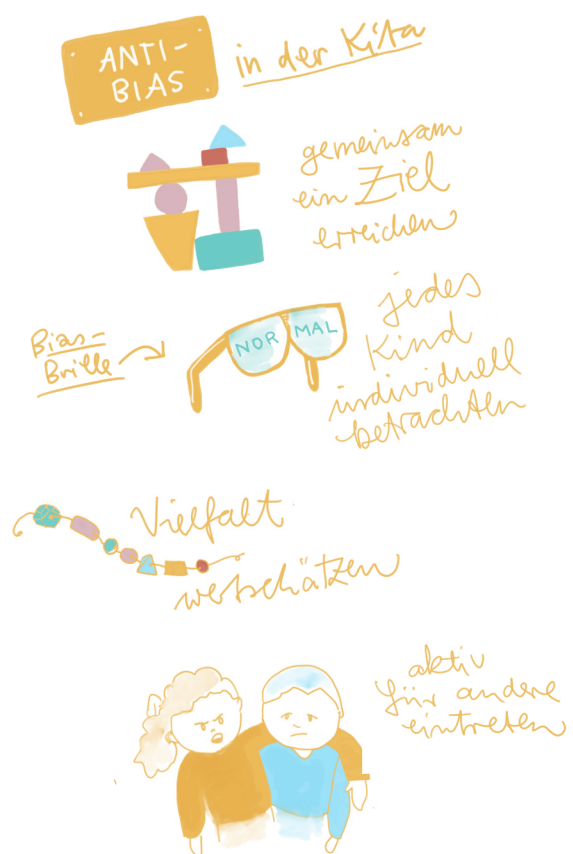 ANTI-
BIAS
in der Kita
gemeinsam
ein Ziel
erreichen
Bias-
Brille
NOR MAL
jedes
Kind
individuell
betrachten
Vielfalt
wertschätzen
aktiv
für andere
eintreten